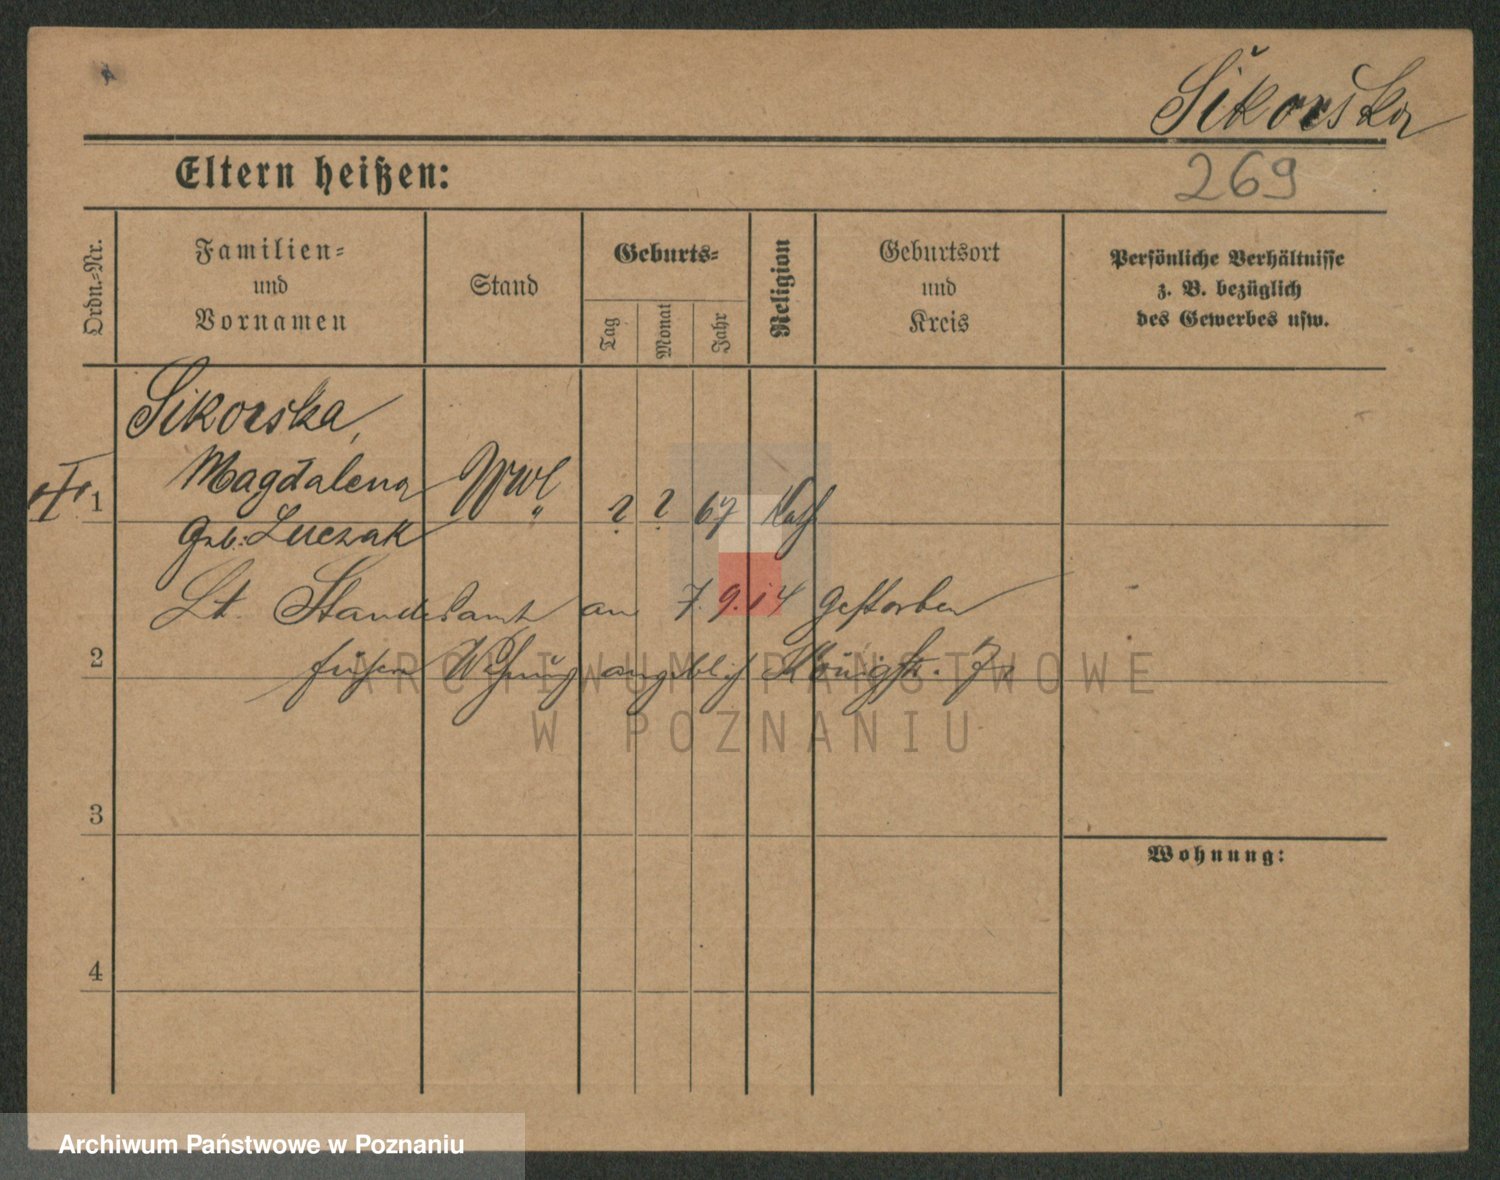 Sikorska
269
Eltern heißen:
Ordn.-Nr.
Familien-
und
Vornamen
Stand
Geburts-
Tag
Monat
Jahr
Religion
Geburtsort
und
Kreis
Persönliche Verhältnisse
z. B. bezüglich
des Gewerbes usw.
Sikorska,
Magdalena Wwe
1 ? ? 67 Kath
geb. Luczak
Lt. Standesamt am 7.9.14 gestorben
2 frühere Wohnung angeblich Königstr. 7
ARCHIWUM PAŃSTWOWE
W POZNANIU
3
Wohnung:
4
Archiwum Państwowe w Poznaniu